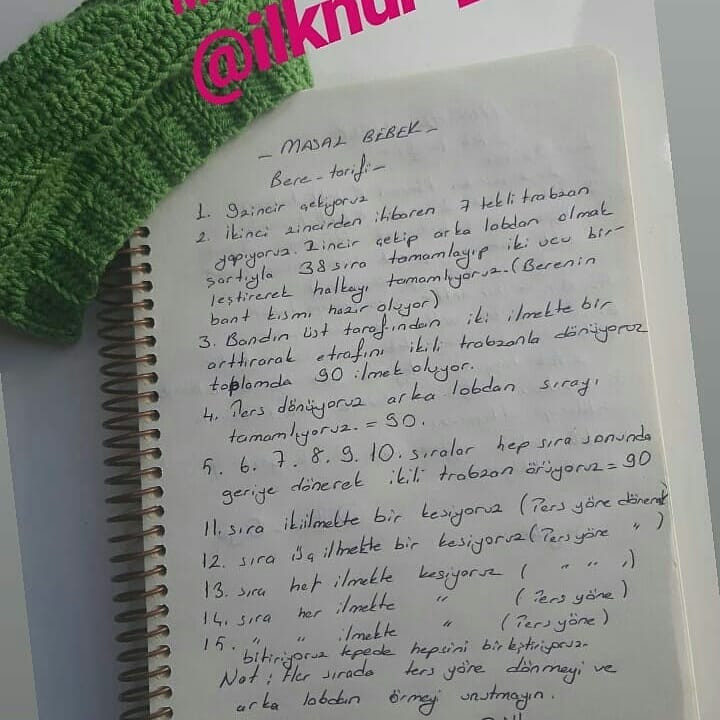 @ilknur
- MASAL BEBEK -
Bere - tarifi -
1. 9zincir çekiyoruz
2. ikinci zincirden itibaren 7 tekli trabzan
yapıyoruz. Zincir çekip arka lobdan olmak
şartıyla 38 sıra tamamlayıp iki ucu bir-
leştirerek halkayı tamamlıyoruz. (Berenin
bant kısmı hazır oluyor)
3. Bandın üst tarafından iki ilmekte bir
arttırarak etrafını ikili trabzanla dönüyoruz
toplamda 90 ilmek oluyor.
4. Ters dönüyoruz arka lobdan sırayı
tamamlıyoruz. = 90.
5. 6. 7. 8. 9. 10. sıralar hep sıra sonunda
geriye dönerek ikili trabzan örüyoruz = 90
11. sıra ikiilmekte bir kesiyoruz (Ters yöne dönerek)
12. sıra üç ilmekte bir kesiyoruz (Ters yöne " )
13. sıra her ilmekte kesiyoruz ( " " " )
14. sıra her ilmekte " (Ters yöne)
15. " " ilmekte " (Ters yöne)
bitiriyoruz tepede hepsini birleştiriyoruz.
Not : Her sırada ters yöne dönmeyi ve
arka lobdan örmeyi unutmayın.